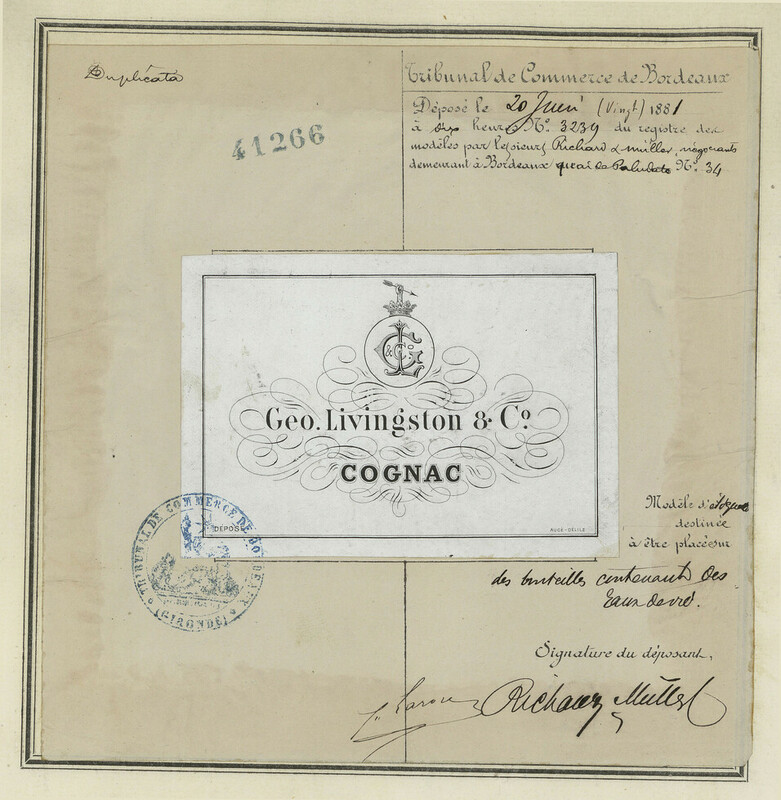 Duplicata
41266
Tribunal de Commerce de Bordeaux
Déposé le 20 Juin (Vingt) 1881
à dix heures No. 3239 du registre des
modèles par les sieurs Richard & Müller, négociants
demeurant à Bordeaux quai de Paludate No. 34
G L & Co
Geo. Livingston & Co.
COGNAC
DÉPOSÉ
TRIBUNAL DE COMMERCE DE BORDEAUX
(GIRONDE)
Modèle d'étiquette
destinée
à être placée sur
des bouteilles contenant des
Eaux de vie.
Signature du déposant,
Richard Müller